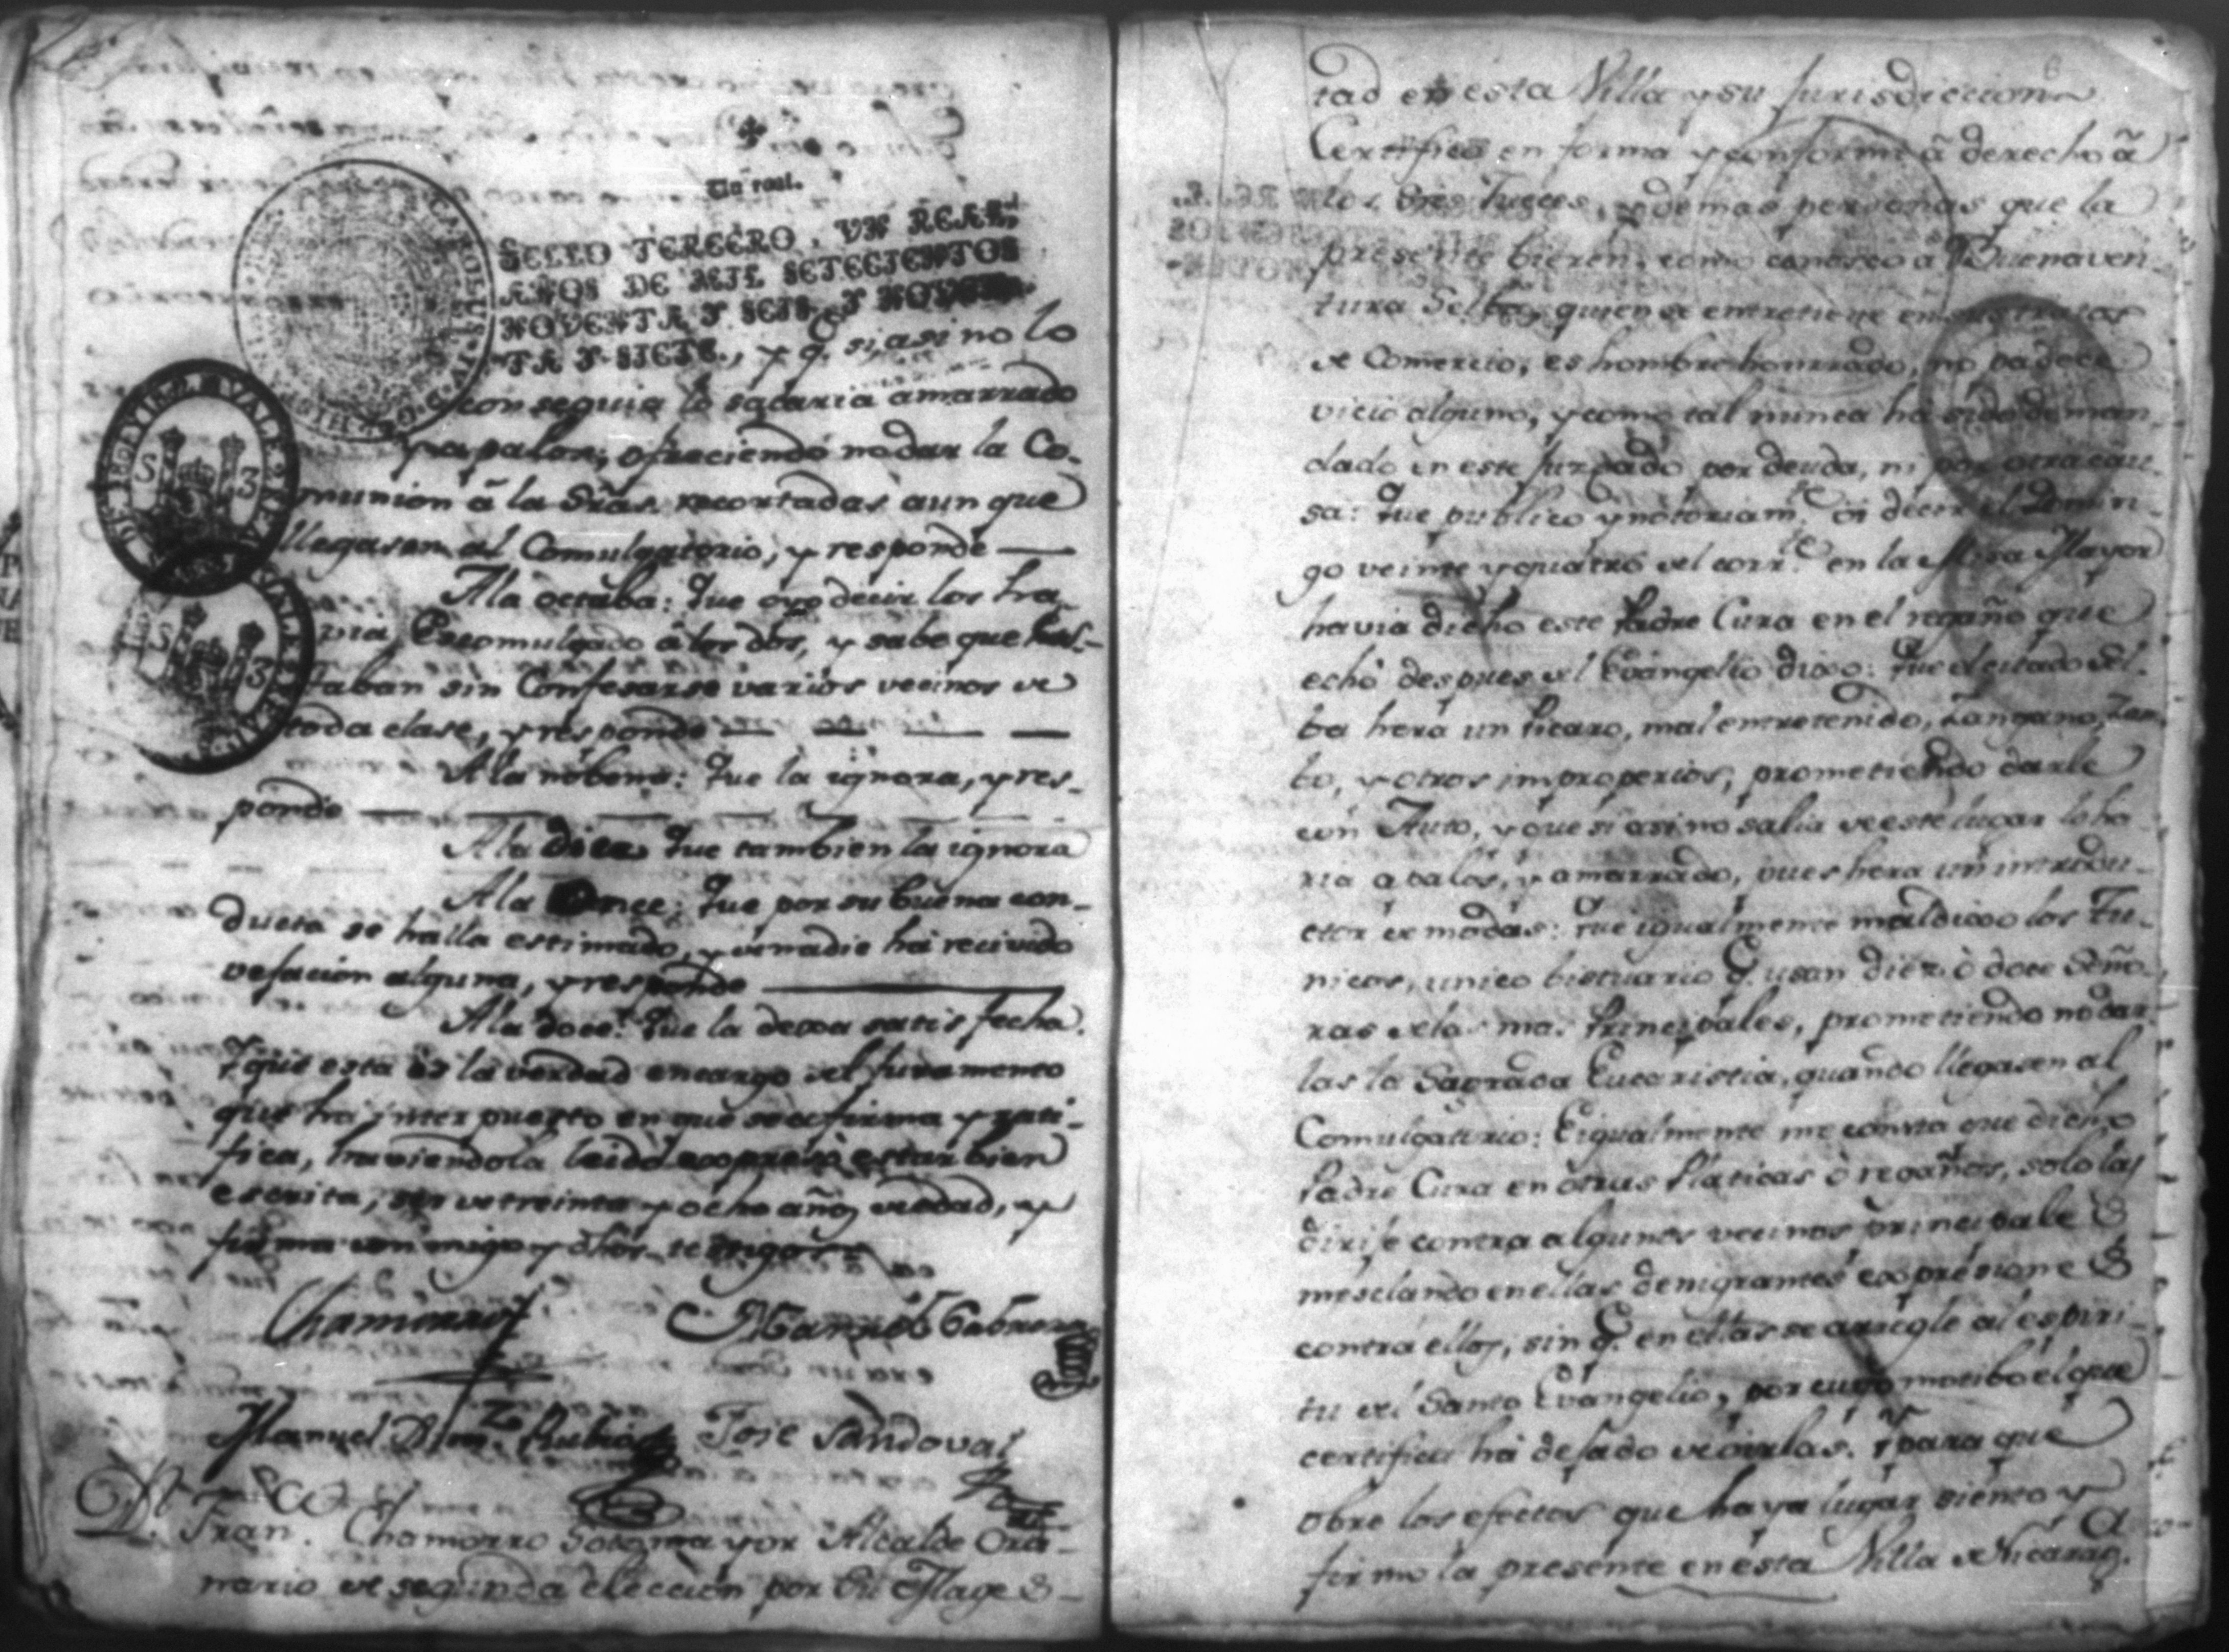 Un real.
SELLO TERCERO, UN REAL,
AÑOS DE MIL SETECIENTOS
NOVENTA Y SEIS, Y NOVEN-
TA Y SIETE., y q. si asi no lo
conseguia lo sacaria amarrado
y a palos; ofreciendo no dar la Co-
munion â la Sras. recortadas aun que
llegasen al Comulgatorio, y responde
A la octaba: Que oyo decir los ha-
via Excomulgado â los dos, y sabe que
taban sin Confesarse varios vecinos de
toda clase, y responde
A la nobena: Que la ignora, y res-
ponde
A la Diez Que tambien la ignora
A la Once: Que por su buena con-
ducta se halla estimado, y de nadie ha recivido
vejacion alguna, y responde
A la doce: Que la dexa satisfecha.
Y que esta es la verdad encargo del juramento
que ha interpuesto en que se afirma y rati-
fica, haviendola leido expresò estar bien
escrita, ser de treinta y ocho años de edad, y
firma con migo y dhos. testigos
Chamorro
Manuel Cabrera
Manuel Rubio
Jose Sandoval
Dn. Franco. Chamorro Sotomayor Alcalde Ordi-
nario de segunda eleccion por Su Mages-
tad en esta Villa y su Jurisdiccion
Certifico en forma y conforme â derecho â
los Sres Jueces, y demas personas que la
presente bieren, como conosco a Buenaven-
tura Selba, quien se entretiene en sus tratos
de Comercio, es hombre honrrado, no padece
vicio alguno, y como tal nunca ha sido deman-
dado en este Juzgado por deuda, ni por otra cau-
sa: Que publico y notoriamte. oi decir el Domin-
go veinte y quatro del corrte. en la Misa Mayor
havia dicho este Padre Cura en el regaño que
echó despues del Evangelio dixo: Que el citado Sel-
ba hera un Picaro, mal entretenido, Zangano, Zam-
bo, y otros improperios, prometiendo darle
con Auto, y que si asi no salia de este lugar lo ha-
ria a palos, y amarrado, pues hera un introdu-
ctor de modas: Que igualmente maldixo los Tu-
nicos, unico bistuario q. usan diez ò doce Seño-
ras de las mas Principales, prometiendo no dar-
las la Sagrada Eucaristia, quando llegasen al
Comulgatorio: E igualmente me consta que dicho
Padre Cura en otras Platicas ò regaños, solo las
dirije contra algunos vecinos principales
mesclando en ellas denigrantes expresiones
contra ellos, sin q. en ellas se arregle al espiri-
tu del Santo Evangelio, por cuyo motibo el que
certifica ha dejado de oirlas. Y para que
obre los efectos que haya lugar siento y
firmo la presente en esta Villa de Nicarag.a